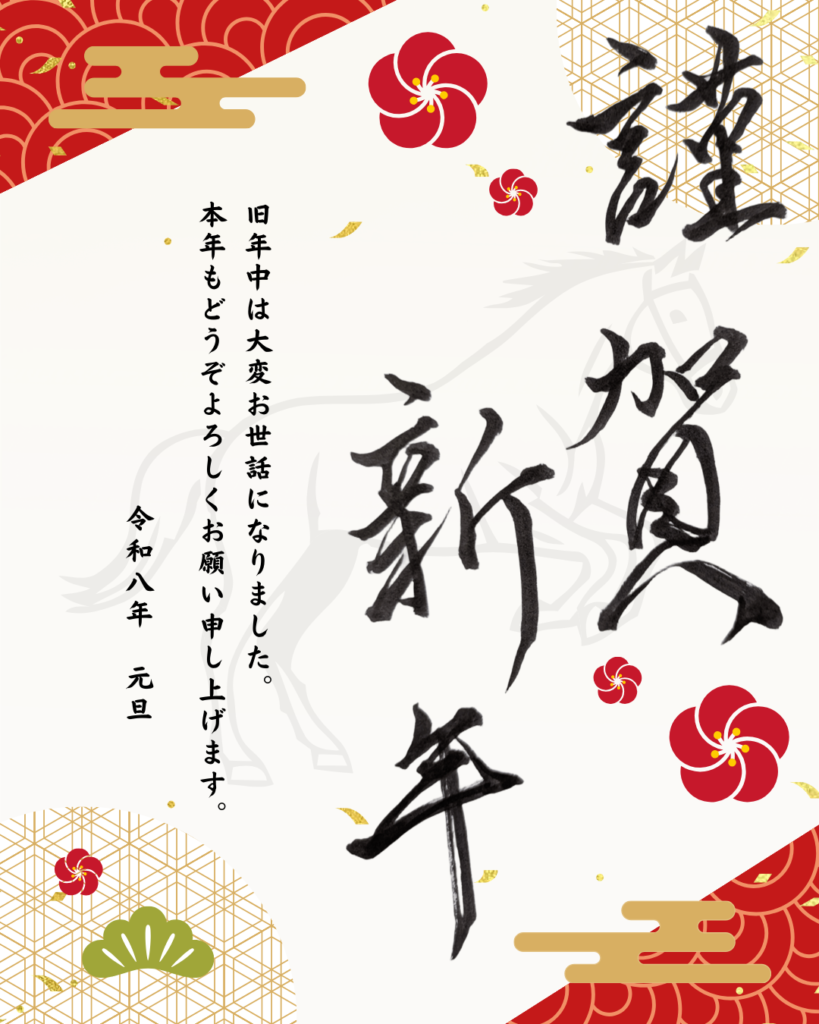 謹賀
新年
旧年中は大変お世話になりました。
本年もどうぞよろしくお願い申し上げます。
令和八年　元旦